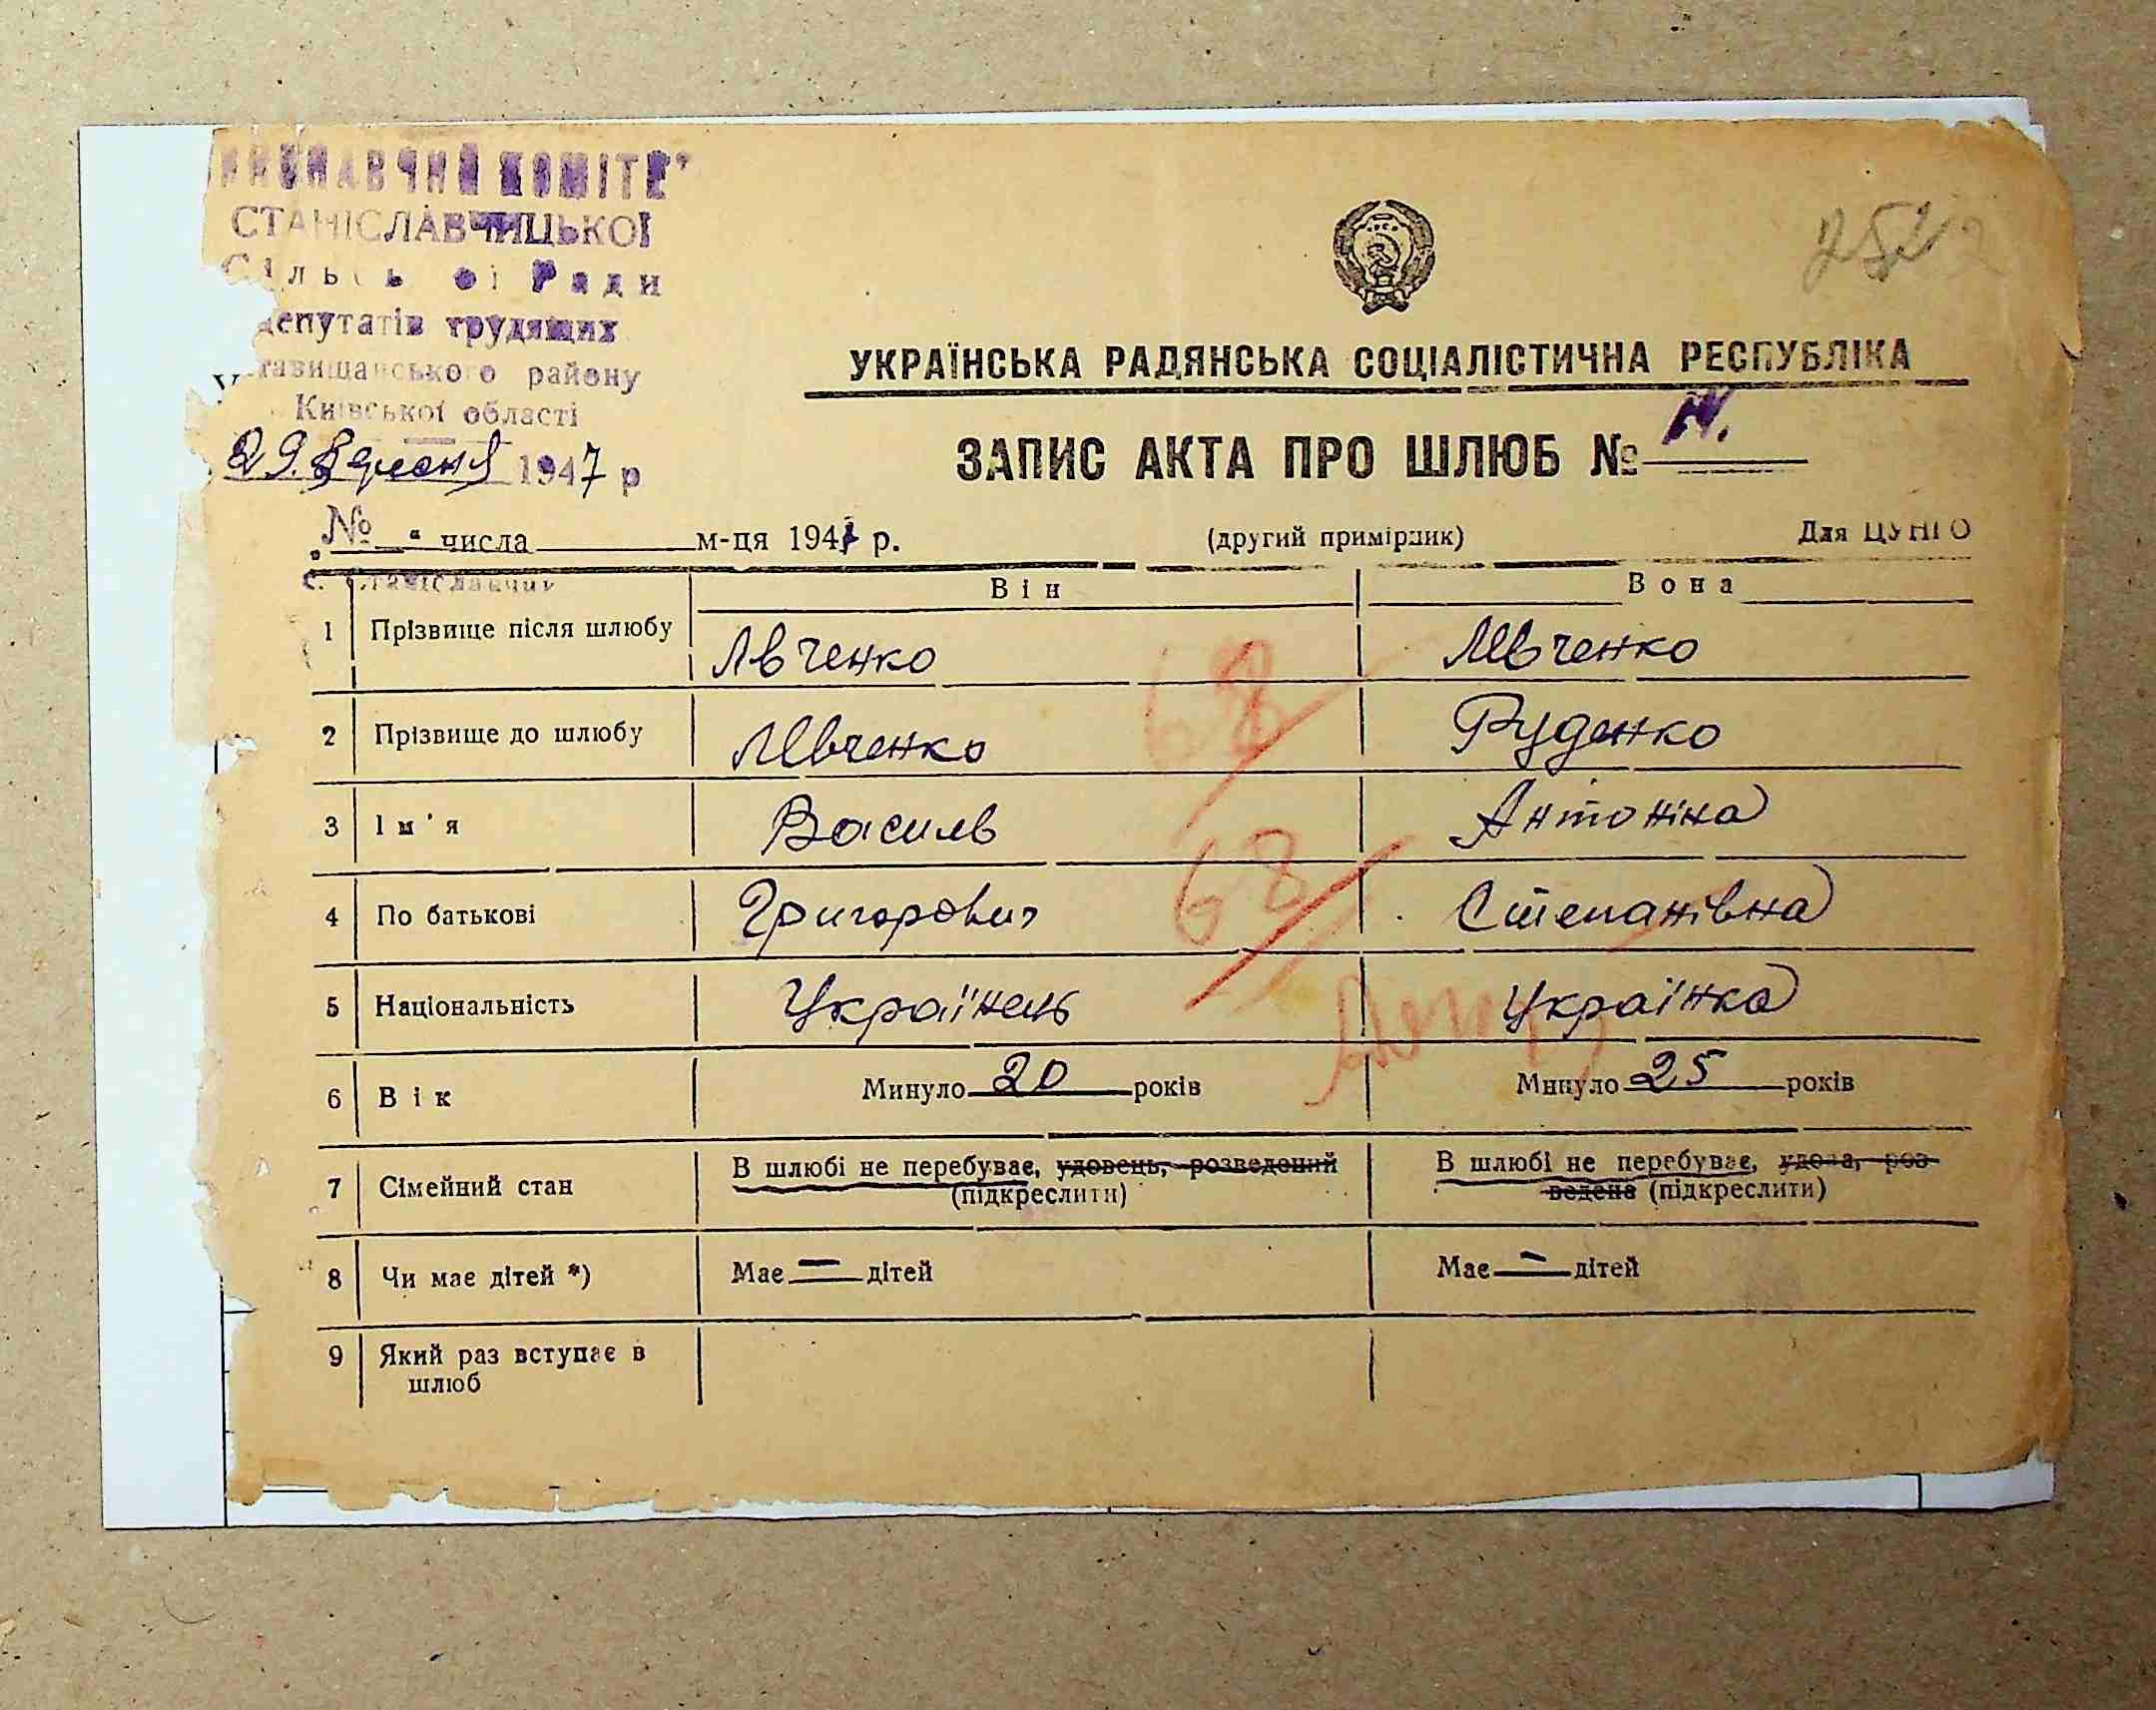 ВИКОНАВЧИЙ КОМІТЕТ
СТАНІСЛАВЧИЦЬКОЇ
Сільської Ради
депутатів трудящих
Ставищанського району
Київської області
29 Вересня 1947 р
252
УКРАЇНСЬКА РАДЯНСЬКА СОЦІАЛІСТИЧНА РЕСПУБЛІКА
ЗАПИС АКТА ПРО ШЛЮБ №
№ „ “ числа м-ця 1947 р. (другий примірник) Для ЦУНГО
с. Станіславчик
Він Вона
1 Прізвище після шлюбу Лвченко Левченко
2 Прізвище до шлюбу Левченко Руденко
3 Ім'я Василь Антоніна
4 По батькові Григорович Степанівна
5 Національність Українець Українка
68
68
6 Вік Минуло 20 років Минуло 25 років
7 Сімейний стан В шлюбі не перебуває, удовець, розведений В шлюбі не перебуває, удова, роз-
(підкреслити) ведена (підкреслити)
8 Чи має дітей *) Має — дітей Має — дітей
9 Який раз вступає в
шлюб